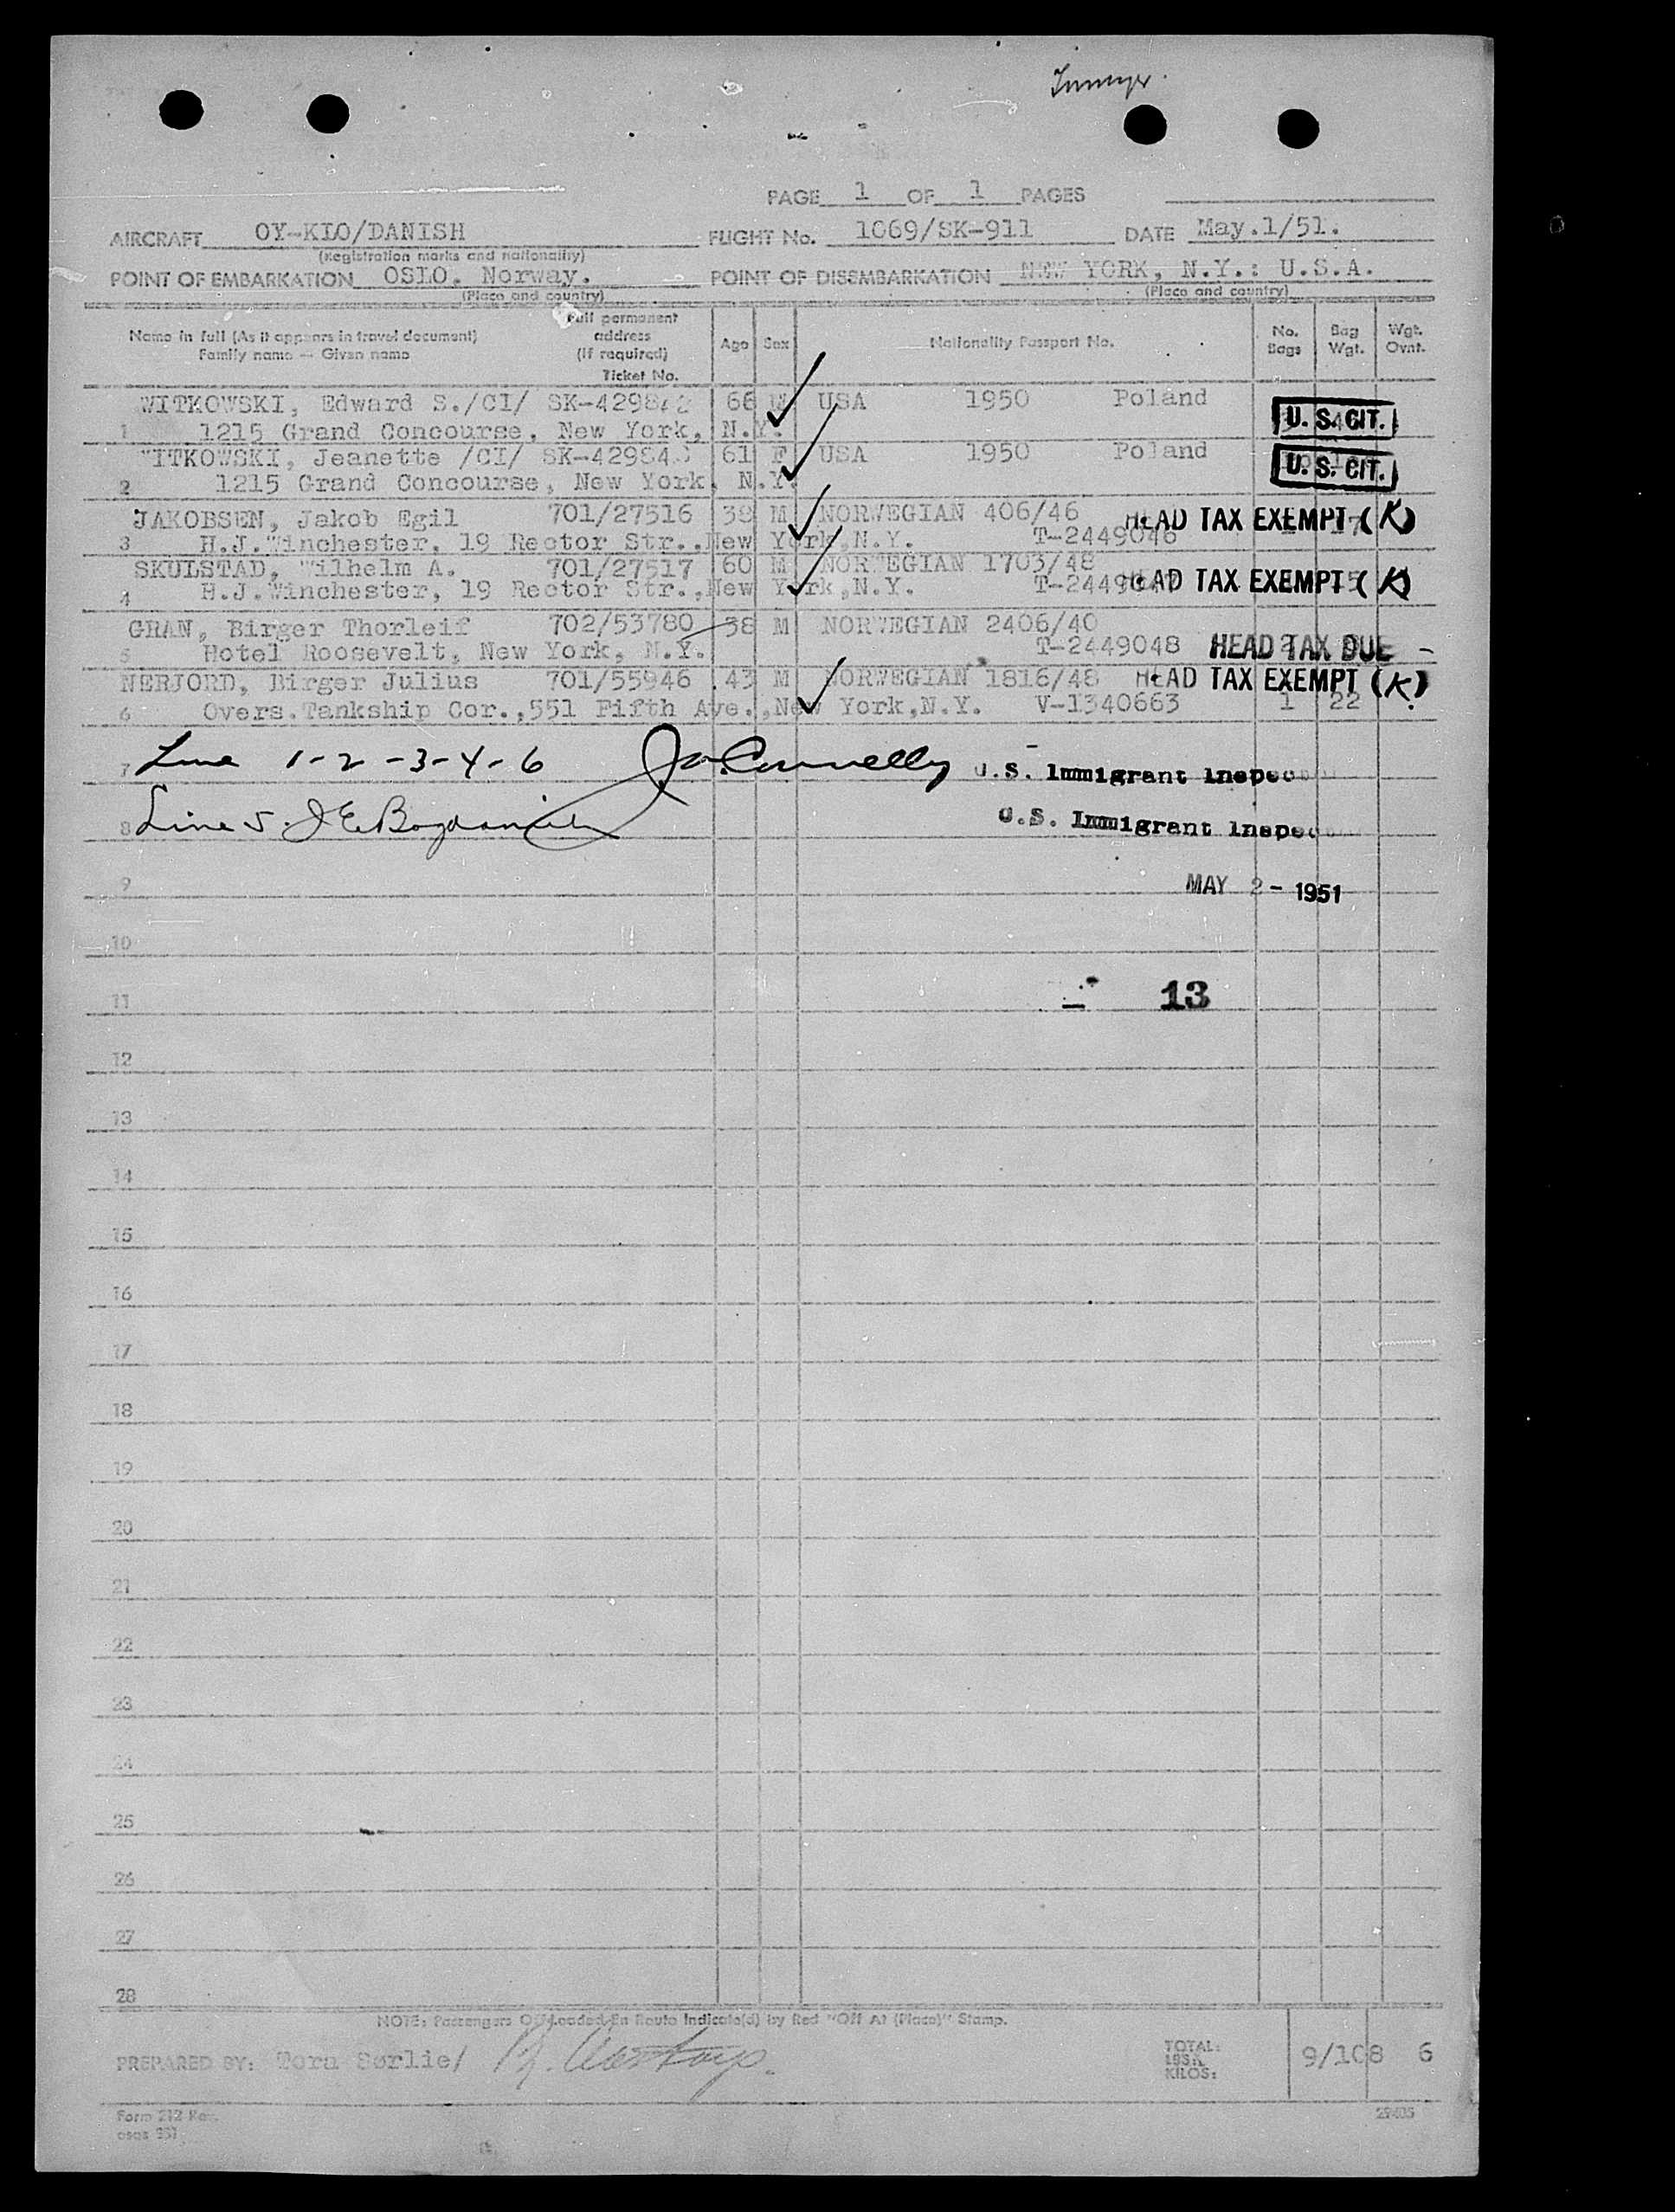 PAGE 1 OF 1 PAGES
AIRCRAFT OY-KLO/DANISH FLIGHT No. 1069/SK-911 DATE May.1/51.
(Registration marks and nationality)
POINT OF EMBARKATION OSLO. Norway. POINT OF DISEMBARKATION NEW YORK, N.Y.: U.S.A.
(Place and country) (Place and country)
Name in full (As it appears in travel document) Family name — Given name Full permanent address (If required) Ticket No. Age Sex Nationality Passport No. No. Bags Bag Wgt. Wgt. Ovnt.
WITKOWSKI, Edward S./CI/ SK-429842 66 M USA 1950 Poland U. S. CIT.
1 1215 Grand Concourse, New York, N.Y.
WITKOWSKI, Jeanette /CI/ SK-429843 61 F USA 1950 Poland U. S. CIT.
2 1215 Grand Concourse, New York, N.Y.
JAKOBSEN, Jakob Egil 701/27516 38 M NORWEGIAN 406/46 HEAD TAX EXEMPT (K)
3 H.J.Winchester, 19 Rector Str.,New York,N.Y. T-2449046
SKULSTAD, Wilhelm A. 701/27517 60 M NORWEGIAN 1703/48
4 H.J.Winchester, 19 Rector Str.,New York,N.Y. T-2449047 HEAD TAX EXEMPT (K)
GRAN, Birger Thorleif 702/53780 38 M NORWEGIAN 2406/40
5 Hotel Roosevelt, New York, N.Y. T-2449048 HEAD TAX DUE -
NERJORD, Birger Julius 701/55946 43 M NORWEGIAN 1816/48 HEAD TAX EXEMPT (K)
6 Overs.Tankship Cor.,551 Fifth Ave.,New York,N.Y. V-1340663 1 22
7 Line 1-2-3-4-6 Connelly U.S. Immigrant Inspec
8 Line 5. U.S. Immigrant Inspec
9 MAY 2- 1951
10
11 - 13
12
13
14
15
16
17
18
19
20
21
22
23
24
25
26
27
28
NOTE: Passengers Off-Loaded En Route Indicate(d) by Red "Off At (Place)" Stamp.
PREPARED BY: Tora Sørlie/ TOTAL: LBS.: KILOS: 9/108 6
Form 212 Rev.